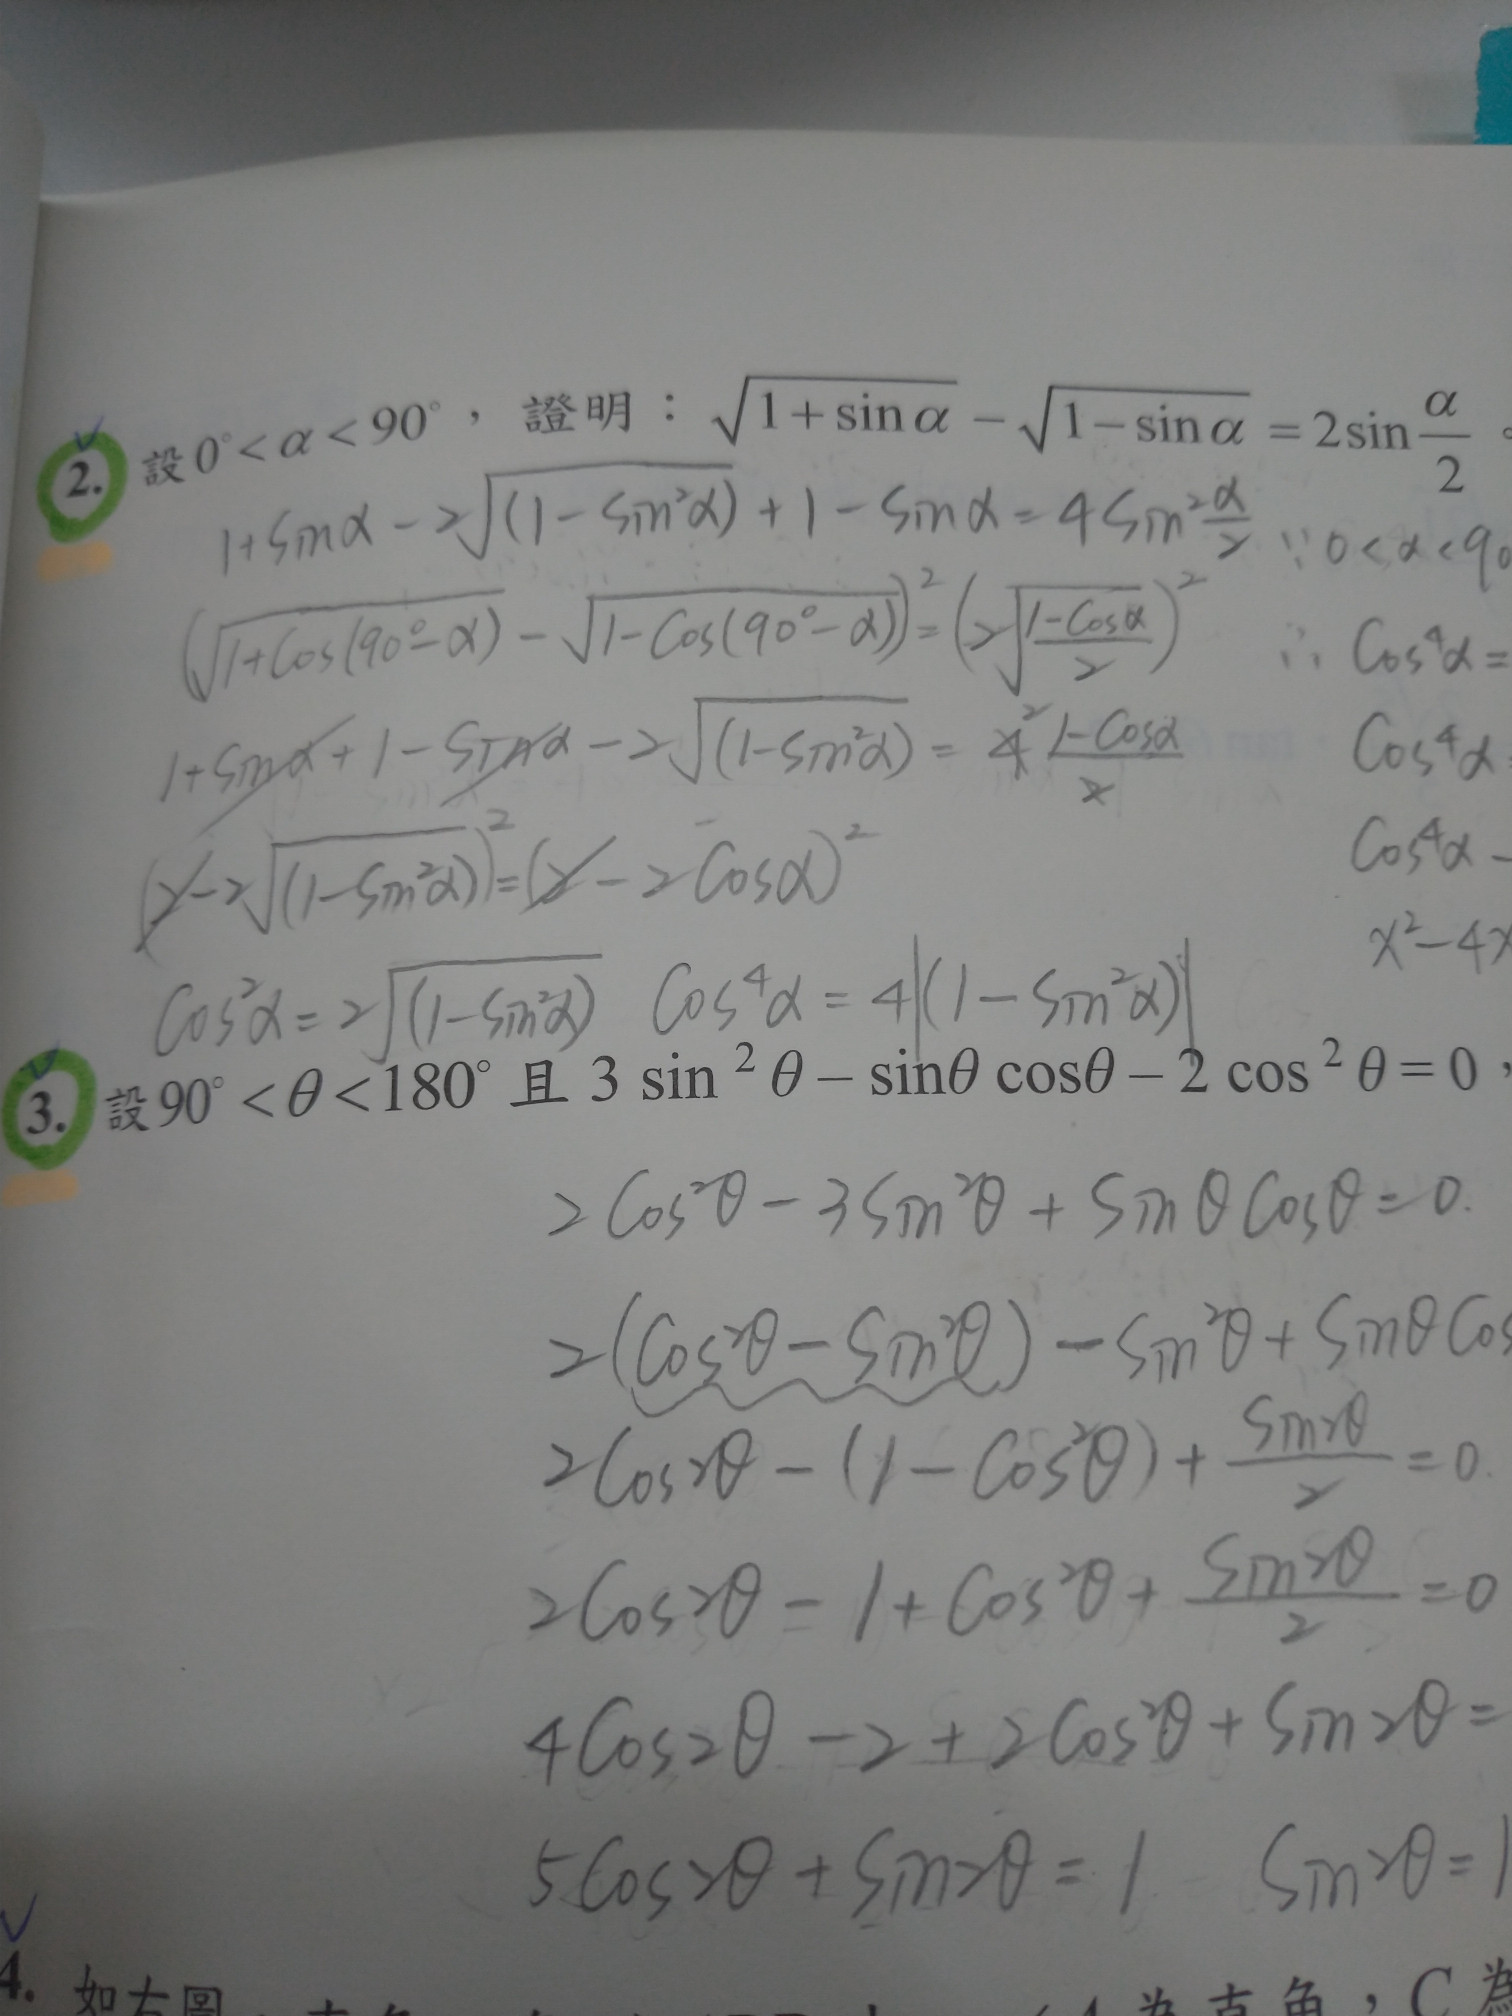 2. 設0°<α<90°，證明：√(1+sinα)−√(1−sinα)=2sin α/2。
1+sinα−2√((1−sin²α))+1−sinα=4sin² α/2 ∵0<α<90
(√(1+cos(90°−α))−√(1−cos(90°−α)))²=(2√((1−cosα)/2))² ∴ cos⁴α=
1+sinα+1−sinα−2√((1−sin²α))=4 2 (1−cosα)/2 cos⁴α
(2−2√((1−sin²α)))²=(2−2cosα)² cos⁴α−
cos²α=2√((1−sin²α)) cos⁴α=4|(1−sin²α)| x²−4x
3. 設90°<θ<180°且3 sin²θ−sinθ cosθ−2 cos²θ=0，
2cos²θ−3sin²θ+sinθcosθ=0.
2(cos²θ−sin²θ)−sin²θ+sinθcos
2cos2θ−(1−cos²θ)+sin2θ/2=0.
2cos2θ=1+cos²θ+sin2θ/2=0
4cos2θ−2+2cos²θ+sin2θ=
5cos2θ+sin2θ=1 sin2θ=1
4. 如右圖，為直角，C為